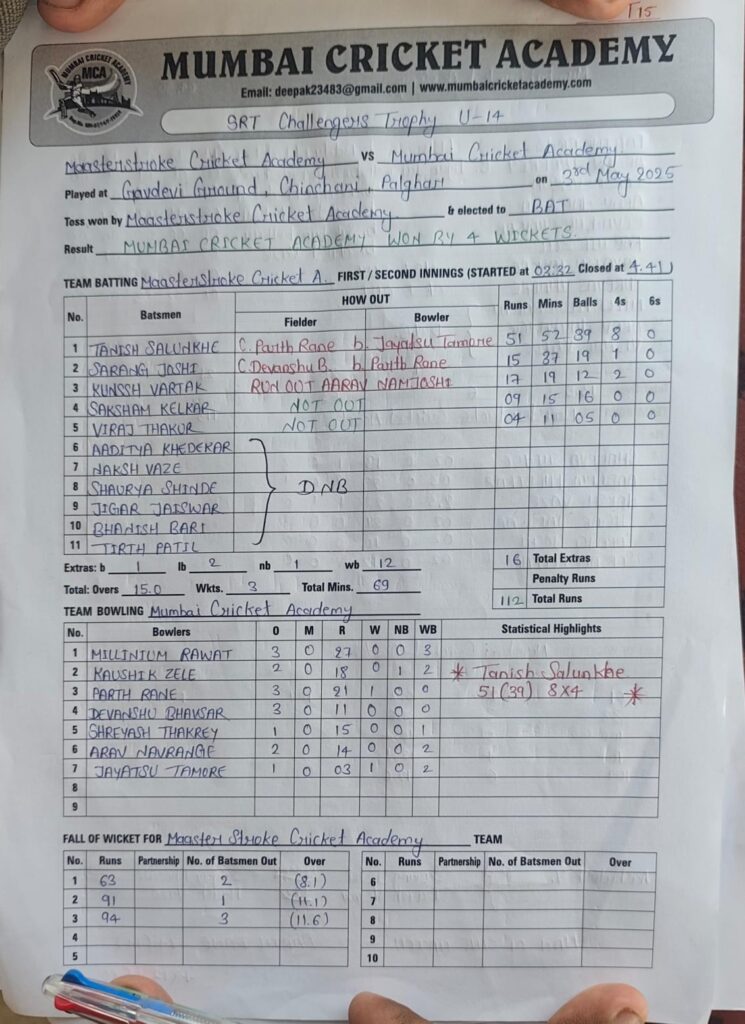 T15
MUMBAI CRICKET ACADEMY
MCA
MUMBAI CRICKET ACADEMY
Email: deepak23483@gmail.com | www.mumbaicricketacademy.com
SRT Challengers Trophy U-14
Maasterstroke Cricket Academy VS Mumbai Cricket Academy
Played at Gavdevi Ground, Chinchani, Palghar on 3rd May 2025
Toss won by Maasterstroke Cricket Academy & elected to BAT
Result MUMBAI CRICKET ACADEMY WON BY 4 WICKETS.
TEAM BATTING MaasterStroke Cricket A. FIRST / SECOND INNINGS (STARTED at 03:32 Closed at 4.41)
No. Batsmen HOW OUT Runs Mins Balls 4s 6s
Fielder Bowler
1 TANISH SALUNKHE C. Parth Rane b. Jayatsu Tamore 51 52 39 8 0
2 SARANG JOSHI C. Devanshu B. b. Parth Rane 15 37 19 1 0
3 KUNSSH VARTAK RUN OUT AARAV NAMJOSHI 17 19 12 2 0
4 SAKSHAM KELKAR NOT OUT 09 15 16 0 0
5 VIRAJ THAKUR NOT OUT 04 11 05 0 0
6 AADITYA KHEDEKAR
7 NAKSH VAZE
8 SHAURYA SHINDE DNB
9 JIGAR JAISWAR
10 BHANISH BARI
11 TIRTH PATIL
Extras: b 1 lb 2 nb 1 wb 12 16 Total Extras
Penalty Runs
Total: Overs 15.0 Wkts. 3 Total Mins. 69 112 Total Runs
TEAM BOWLING Mumbai Cricket Academy
No. Bowlers O M R W NB WB Statistical Highlights
1 MILLINIUM RAWAT 3 0 27 0 0 3
2 KAUSHIK ZELE 2 0 18 0 1 2 * Tanish Salunkhe
3 PARTH RANE 3 0 21 1 0 0 51 (39) 8x4 *
4 DEVANSHU BHAVSAR 3 0 11 0 0 0
5 SHREYASH THAKREY 1 0 15 0 0 1
6 ARAV NAVRANGE 2 0 14 0 0 2
7 JAYATSU TAMORE 1 0 03 1 0 2
8
9
FALL OF WICKET FOR Maaster Stroke Cricket Academy TEAM
No. Runs Partnership No. of Batsmen Out Over No. Runs Partnership No. of Batsmen Out Over
1 63 2 (8.1) 6
2 91 1 (11.1) 7
3 94 3 (11.6) 8
4 9
5 10